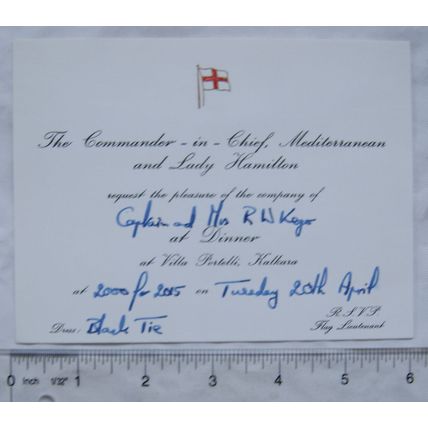 The Commander-in-Chief, Mediterranean
and Lady Hamilton
request the pleasure of the company of
Captain and Mrs R W Keyo
at Dinner
at Villa Portelli, Kalkara
at 2000 for 2015 on Tuesday 20th April
R.S.V.P.
Dress: Black Tie
Flag Lieutenant
0 Inch 1/32" 1 2 3 4 5 6